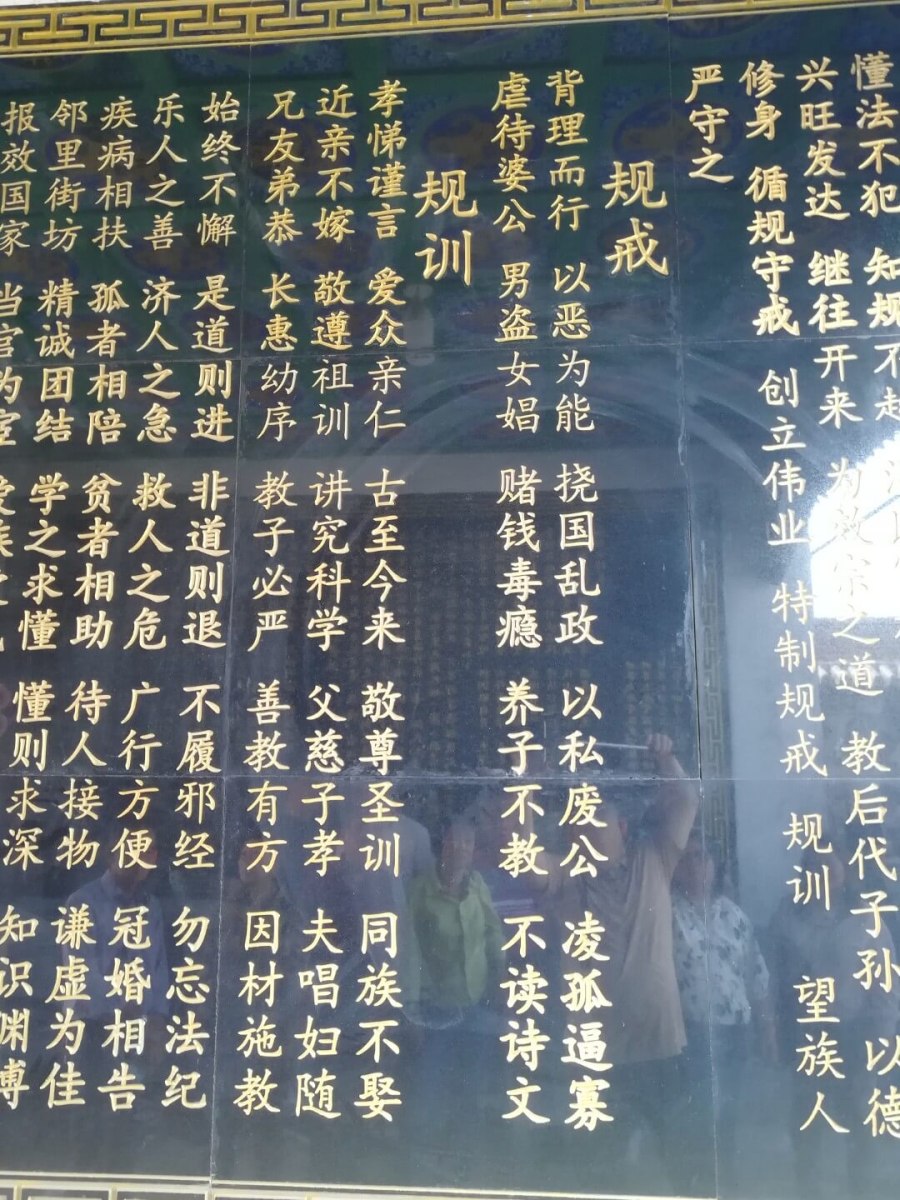 懂法不犯 知规不起
兴旺发达 继往开来 为效宗之道 教后代子孙 以德
修身 循规守戒 创立伟业 特制规戒 规训 望族人
严守之
规戒
背理而行 以恶为能 挠国乱政 以私废公 凌孤逼寡
虐待婆公 男盗女娼 赌钱毒瘾 养子不教 不读诗文
规训
孝悌谨言 爱众亲仁 古至今来 敬尊圣训 同族不娶
近亲不嫁 敬遵祖训 讲究科学 父慈子孝 夫唱妇随
兄友弟恭 长惠幼序 教子必严 善教有方 因材施教
始终不懈 是道则进 非道则退 不履邪经 勿忘法纪
乐人之善 济人之急 救人之危 广行方便 冠婚相告
疾病相扶 孤者相陪 贫者相助 待人接物 谦虚为佳
邻里街坊 精诚团结 学之求懂 懂则求深 知识渊博
报效国家 当官为